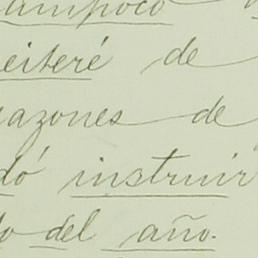 tampoco
eiteré de
azones de
dó instruir
o del año.